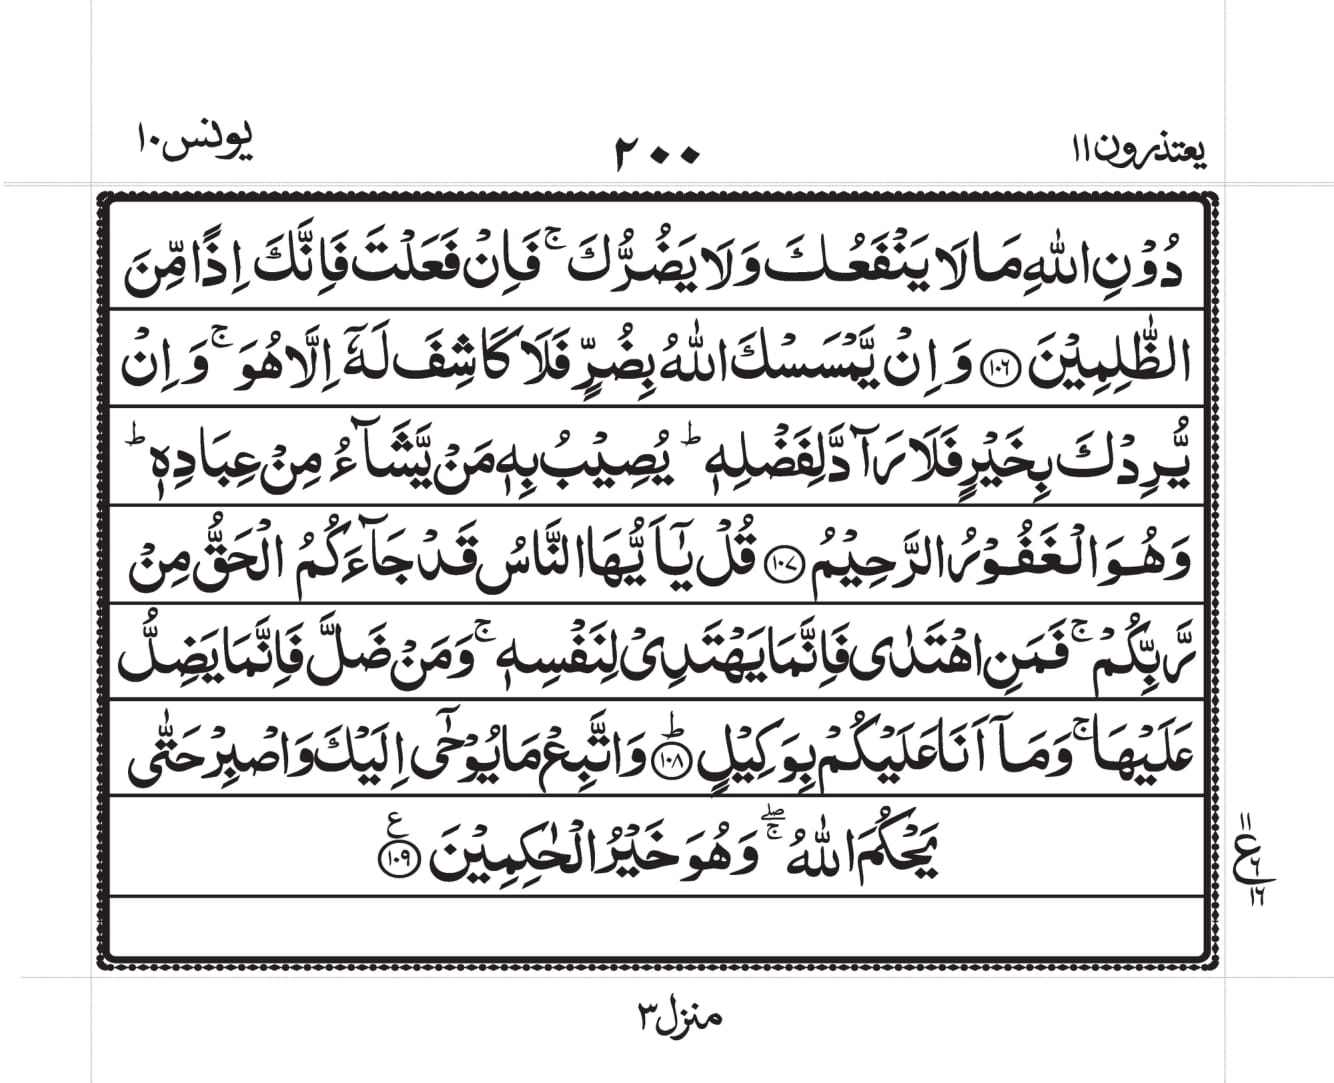 يعتذرون ١١ ٢٠٠ يونس ١٠
دُوْنِ اللّٰهِ مَا لَا يَنْفَعُكَ وَلَا يَضُرُّكَ ۚ فَاِنْ فَعَلْتَ فَاِنَّكَ اِذًا مِّنَ
الظّٰلِمِيْنَ ۝١٠٦ وَاِنْ يَّمْسَسْكَ اللّٰهُ بِضُرٍّ فَلَا كَاشِفَ لَهٗٓ اِلَّا هُوَ ۚ وَاِنْ
يُّرِدْكَ بِخَيْرٍ فَلَا رَآدَّ لِفَضْلِهٖ ؕ يُصِيْبُ بِهٖ مَنْ يَّشَآءُ مِنْ عِبَادِهٖ ؕ
وَهُوَ الْغَفُوْرُ الرَّحِيْمُ ۝١٠٧ قُلْ يٰٓاَيُّهَا النَّاسُ قَدْ جَآءَكُمُ الْحَقُّ مِنْ
رَّبِّكُمْ ۚ فَمَنِ اهْتَدٰى فَاِنَّمَا يَهْتَدِىْ لِنَفْسِهٖ ۚ وَمَنْ ضَلَّ فَاِنَّمَا يَضِلُّ
عَلَيْهَا ۚ وَمَآ اَنَا عَلَيْكُمْ بِوَكِيْلٍ ؕ۝١٠٨ وَاتَّبِعْ مَا يُوْحٰٓى اِلَيْكَ وَاصْبِرْ حَتّٰى
يَحْكُمَ اللّٰهُ ۖۚ وَهُوَ خَيْرُ الْحٰكِمِيْنَ ۝١٠٩ ع
١١
ع ٦
١٦
منزل ٣